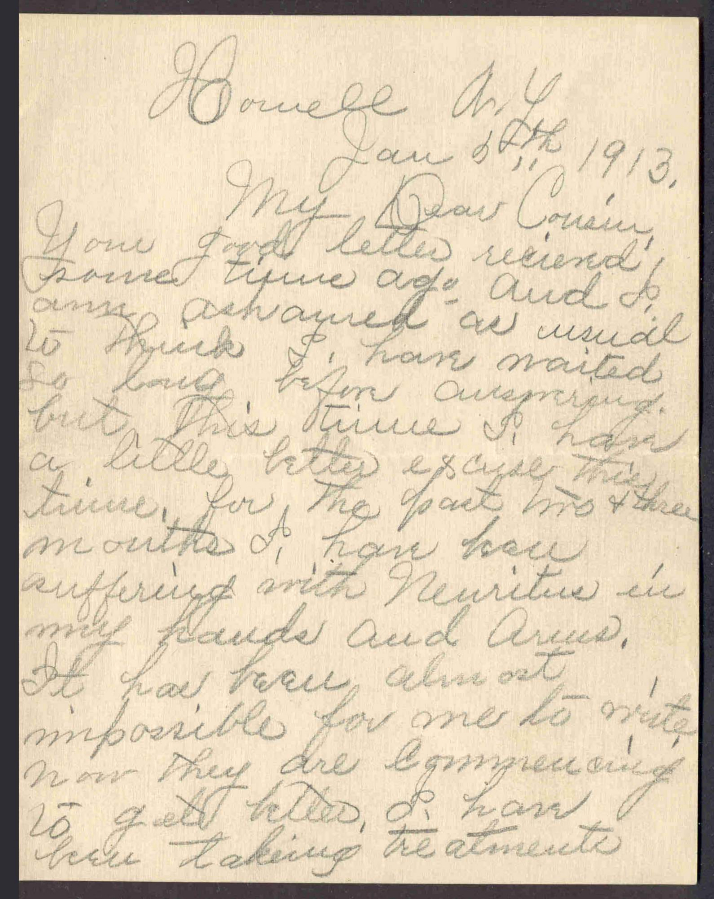 Howell N.Y
Jan 5th 1913.
My Dear Cousin,
Your good letter reciend,
some time ago and I,
am ashamed as usual
to think I, have waited
so long before answering.
but this time I, have
a little better excuse this
time, for the past two & three
months I, have been
suffering with Neuritus in
my hands and Arms.
It has been almost
impossible for me to write,
now they are Commencing
to gett better, I. have
been taking treatments